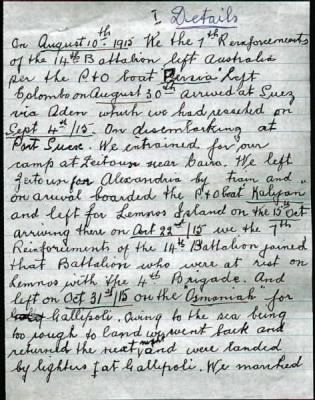 I Details
On August 10th 1915 We the 7th Reinforcements
of the 14th Battalion left Australia
per the P&O boat Persia left
Colombo on August 30th arrived at Suez
via Aden which we had reached on
Sept 4th/15. On disembarking at
Port Suez. We entrained for our
camp at Zeitoun near Cairo. We left
Zeitoun for Alexandria by train and
on arrival boarded the P&O boat Kalyan
and left for Lemnos Island on the 15th Oct
arriving there on Oct 22nd/15 we the 7th
Reinforcements of the 14th Battalion joined
that Battalion who were at rest on
Lemnos with the 4th Brigade. And
left on Oct 31st/15 on the "Osmanieh" for
Gallepoli. Owing to the sea being
too rough to land we went back and
returned the next night and were landed
by lighters at Gallepoli. We marched